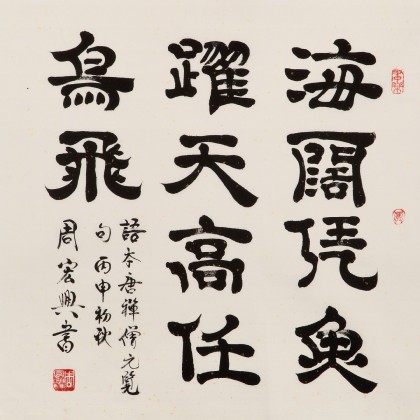 海阔凭鱼
躍天高任
鳥飛
語本唐禅僧元覽
句丙申初秋
周宏興書